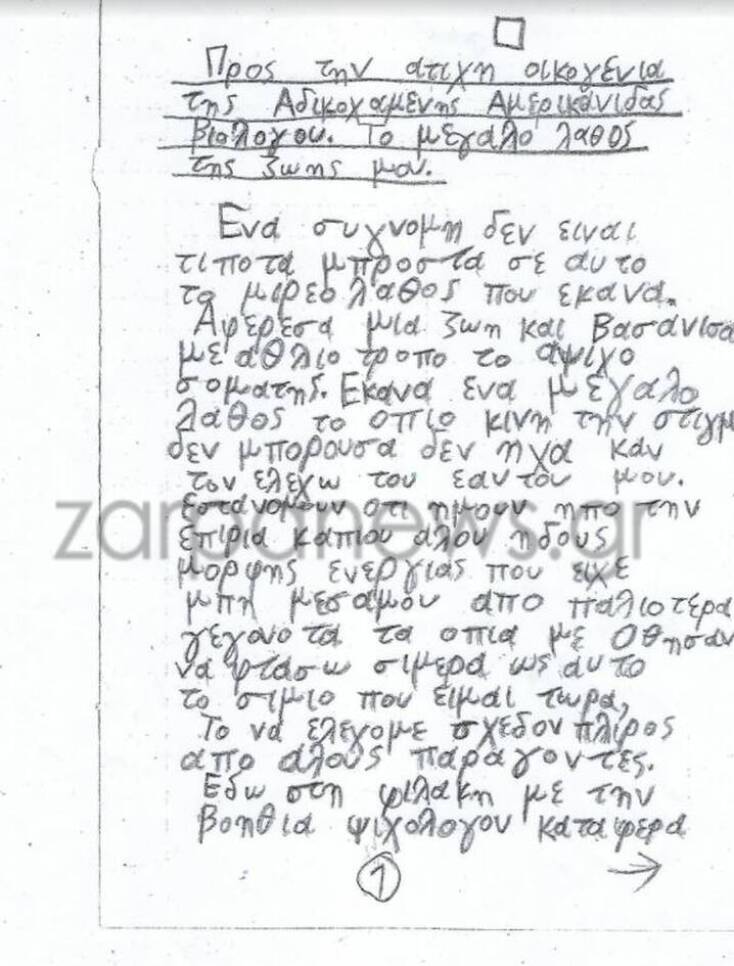 Προς την ατιχη οικογενια
της Αδικοχαμενης Αμερικανιδας
βιολογου. Το μεγαλο λαθος
της ζωης μου.
Ενα συγνομη δεν ειναι
τιποτα μπροστα σε αυτο
το μιρεο λαθος που εκανα.
Αφερεσα μια ζωη και βασανισα
με αθλιο τροπο το αψιχο
σοματης. Εκανα ενα μεγαλο
λαθος το οπιο κινη την στιγμ
δεν μπορουσα δεν ηχα καν
τον ελεχω του εαυτου μου.
εστανομουν οτι ημουν ηπο την
zarpanews.gr
επιρια καπιου αλου ηδους
μορφης ενεργιας που ειχε
μπη μεσαμου απο παλιοτερα
γεγονοτα τα οπια με Οθησαν
να φτασω σιμερα ως αυτο
το σιμιο που ειμαι τωρα,
Το να ελεγομε σχεδον πλιρος
απο αλους παραγοντες.
Εδω στη φιλακη με την
βοηθια ψιχολογου καταφερα
1
→